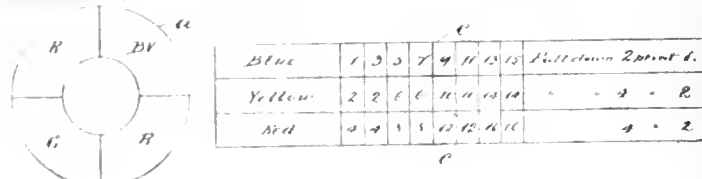 a
R
BV
G
R
C
Blue 1 3 5 7 9 11 13 15 Pull down 2 print 6.
Yellow 2 2 6 6 10 11 14 14 " " 4 " 2
Red 4 4 8 8 12 12 16 16 4 " 2
C